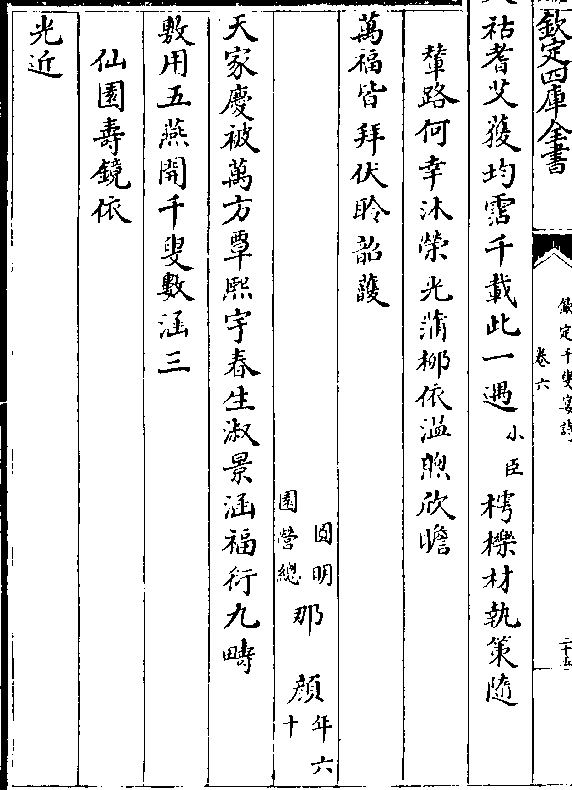 欽定四庫全書
欽定千叟宴詩
卷六
祜耆艾獲均霑千載此一遇小臣樗櫟材執策隨
輦路何幸沐榮光蒲柳依溫煦欣瞻
萬福皆拜伏聆韶頀
圓明園營總那顔年六十
天家慶被萬方覃熙宇春生淑景涵福衍九疇
敷用五燕開千叟數涵三
仙園壽鏡依
光近